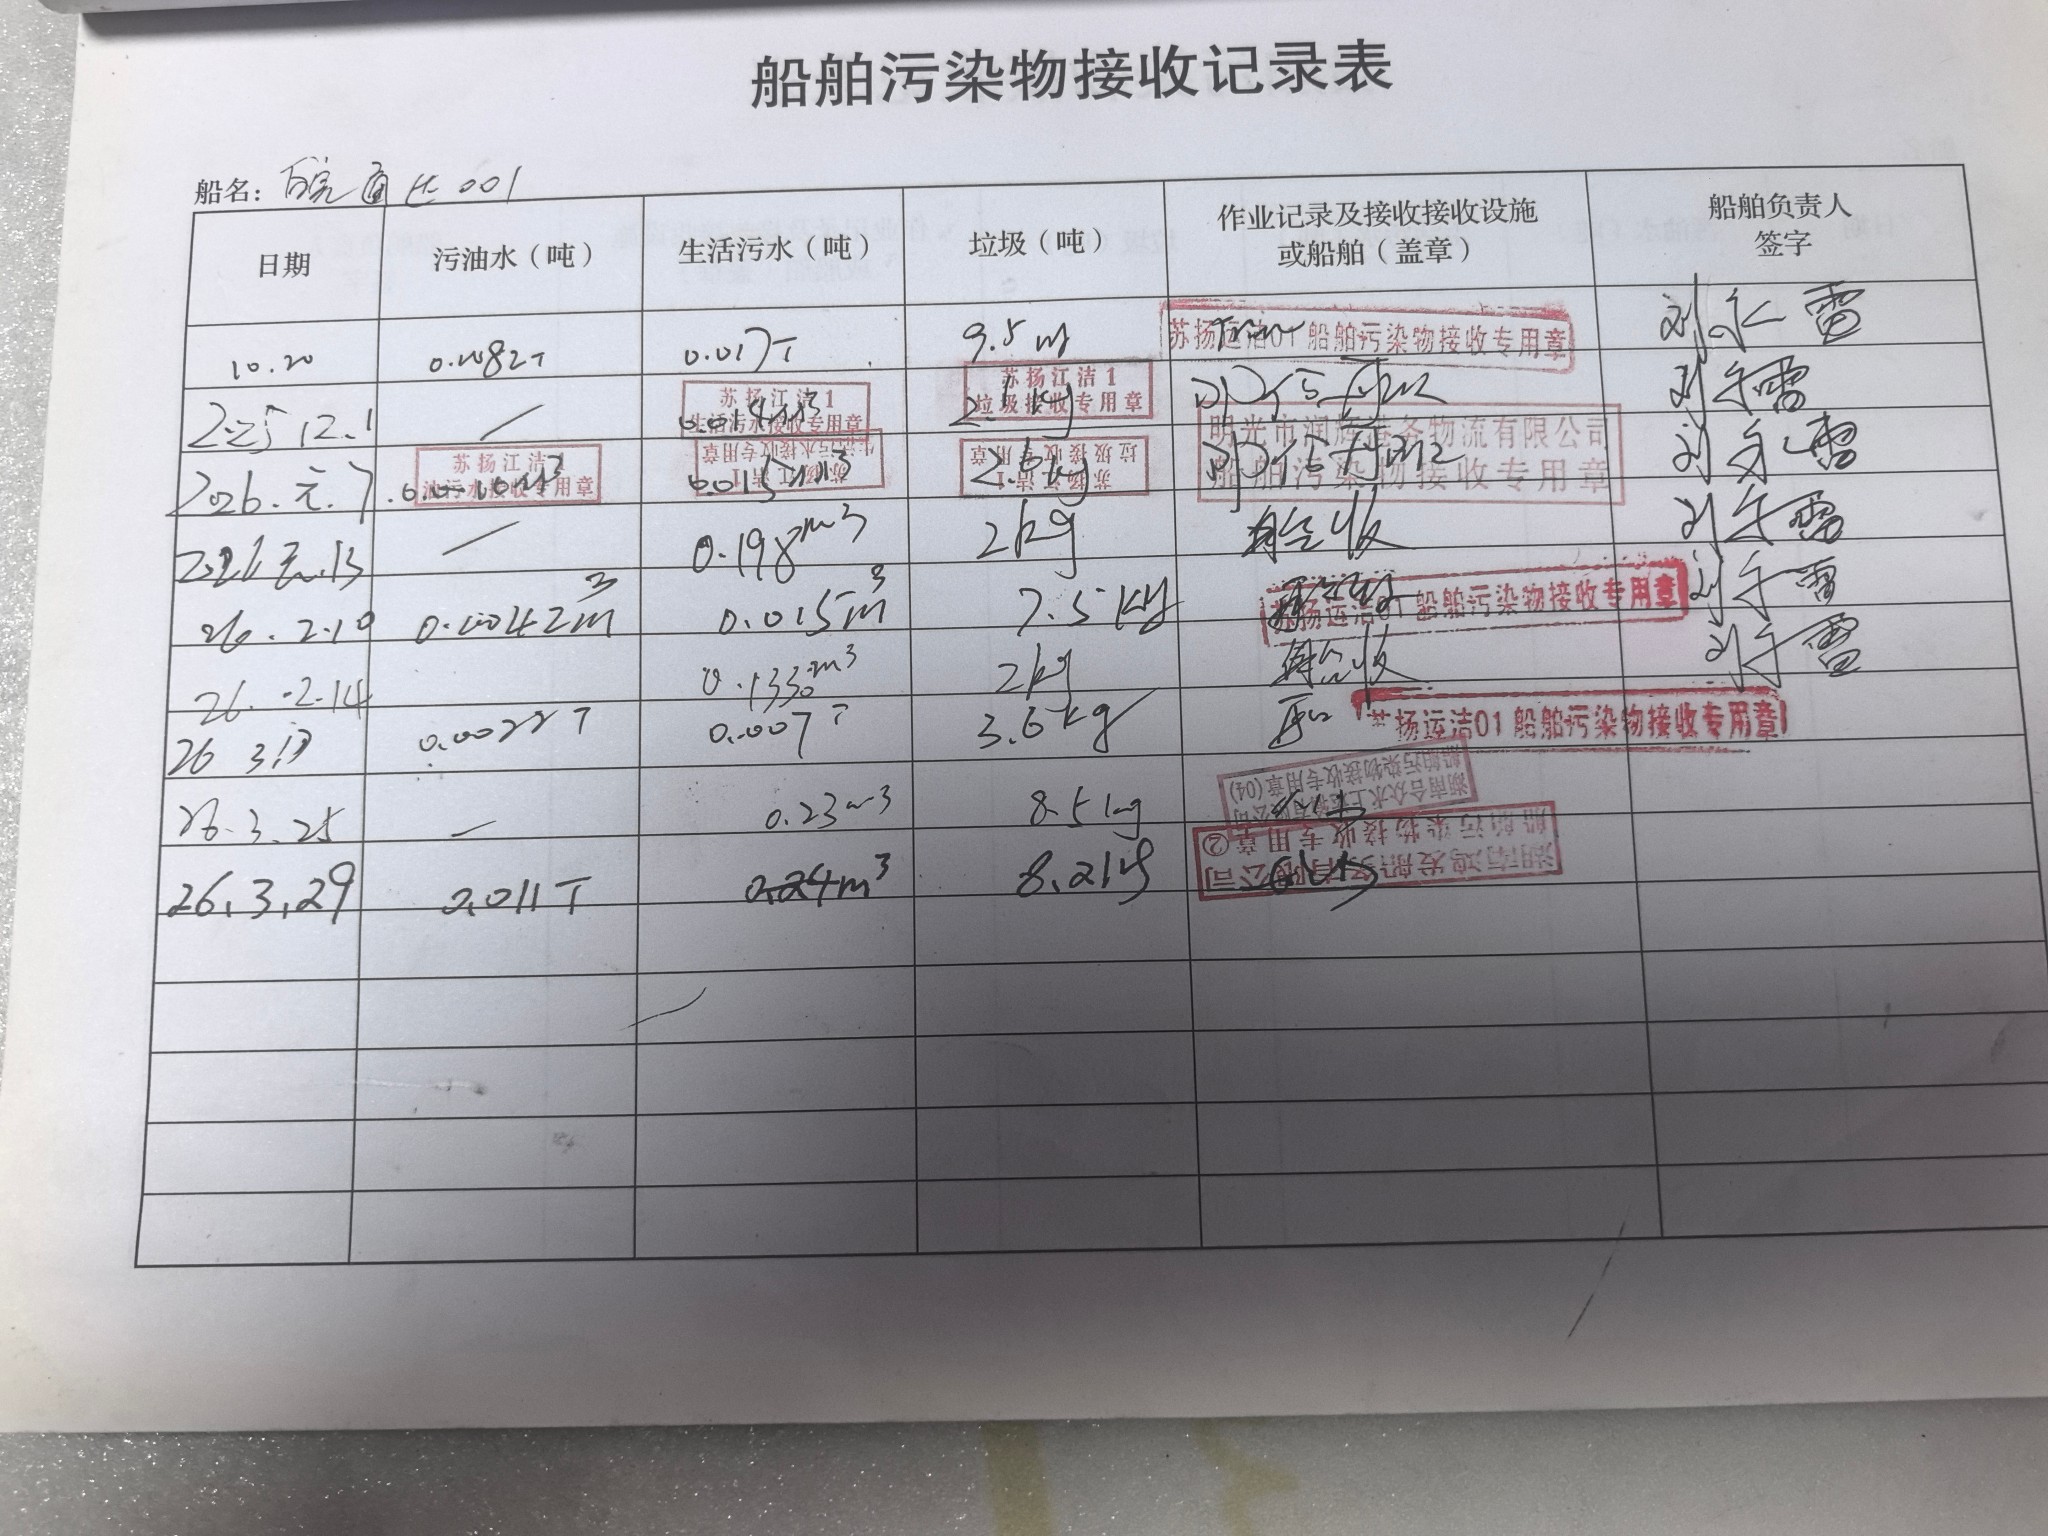 船舶污染物接收记录表
船名: 皖通达001
日期 污油水（吨） 生活污水（吨） 垃圾（吨） 作业记录及接收接收设施或船舶（盖章） 船舶负责人签字
10.20 0.0082T 0.017T 9.5 苏扬运洁01船舶污染物接收专用章 刘永雷
12.1 — 0.014m3 苏扬江洁1 生活污水接收专用章 苏扬江洁1 垃圾接收专用章 刘永雷
2026.元.7 苏扬江洁1 油污水接收专用章 0.015m3 苏扬江洁1 生活污水接收专用章 2.6kg 苏扬江洁1 垃圾接收专用章 明光市润辉港务物流有限公司 船舶污染物接收专用章 刘永雷
2026.元.13 — 0.198m3 2kg 刘永雷
26.2.10 0.0042m3 0.015m3 7.5kg 苏扬运洁01船舶污染物接收专用章 刘永雷
26.2.14 0.133m3 2kg 刘永雷
26 3.17 0.0022T 0.007T 3.6kg 苏扬运洁01船舶污染物接收专用章
26.3.25 — 0.23m3 8.5kg 船舶污染物接收专用章(04)
26.3.29 0.011T 0.24m3 8.2kg 船舶污染物接收专用章②